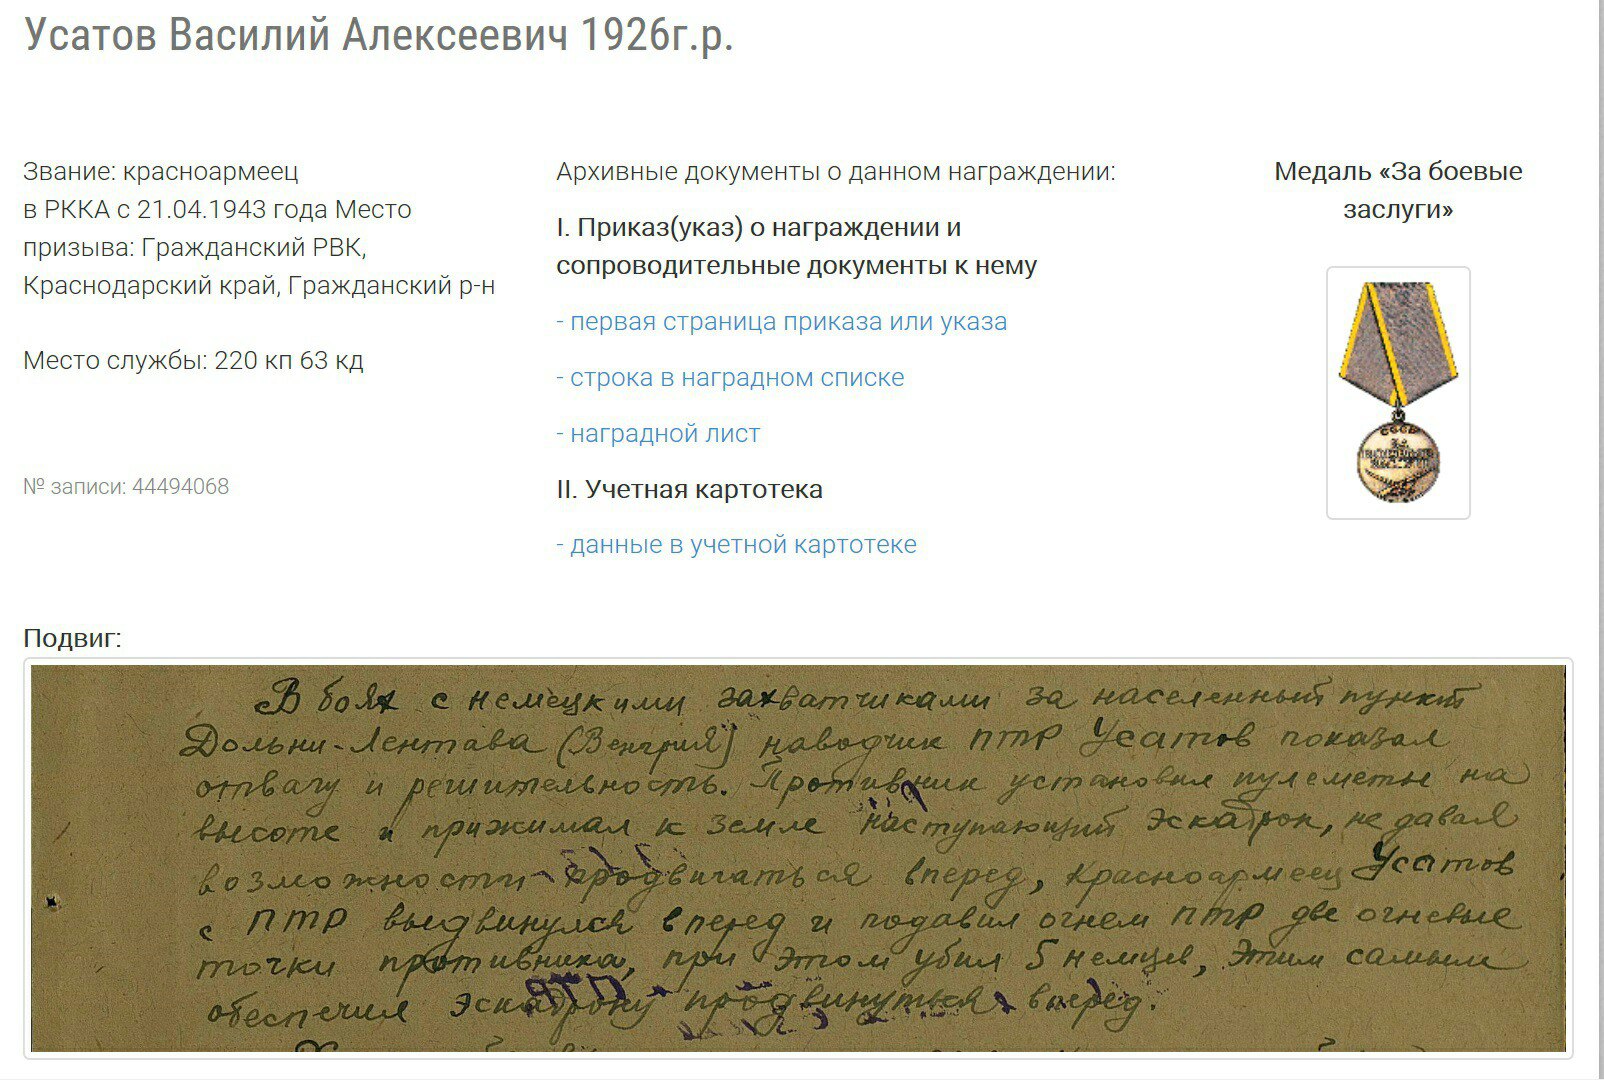 Усатов Василий Алексеевич 1926г.р.
Звание: красноармеец
в РККА с 21.04.1943 года Место
призыва: Гражданский РВК,
Краснодарский край, Гражданский р-н
Место службы: 220 кп 63 кд
№ записи: 44494068
Архивные документы о данном награждении:
I. Приказ(указ) о награждении и
сопроводительные документы к нему
- первая страница приказа или указа
- строка в наградном списке
- наградной лист
II. Учетная картотека
- данные в учетной картотеке
Медаль «За боевые
заслуги»
СССР
ЗА
Подвиг:
В боях с немецкими захватчиками за населенный пункт
Дольни-Лентава (Венгрия) наводчик ПТР Усатов показал
отвагу и решительность. Противник установил пулеметы на
высоте и прижимал к земле наступающий эскадрон, не давая
возможности продвигаться вперед, красноармеец Усатов
с ПТР выдвинулся вперед и подавил огнем ПТР две огневые
точки противника, при этом убил 5 немцев, этим самым
обеспечил эскадрону продвинуться вперед.